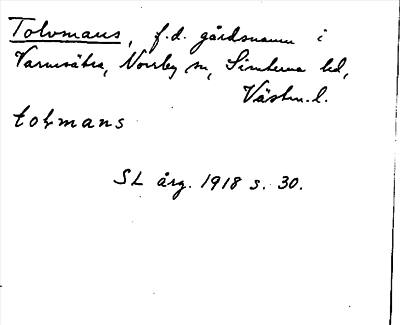 Tolvmans, f.d. gårdsnamn i
Varmsätra, Norrby sn, Simtuna hd,
Västm.l.
tolvmans
SL årg. 1918 s. 30.